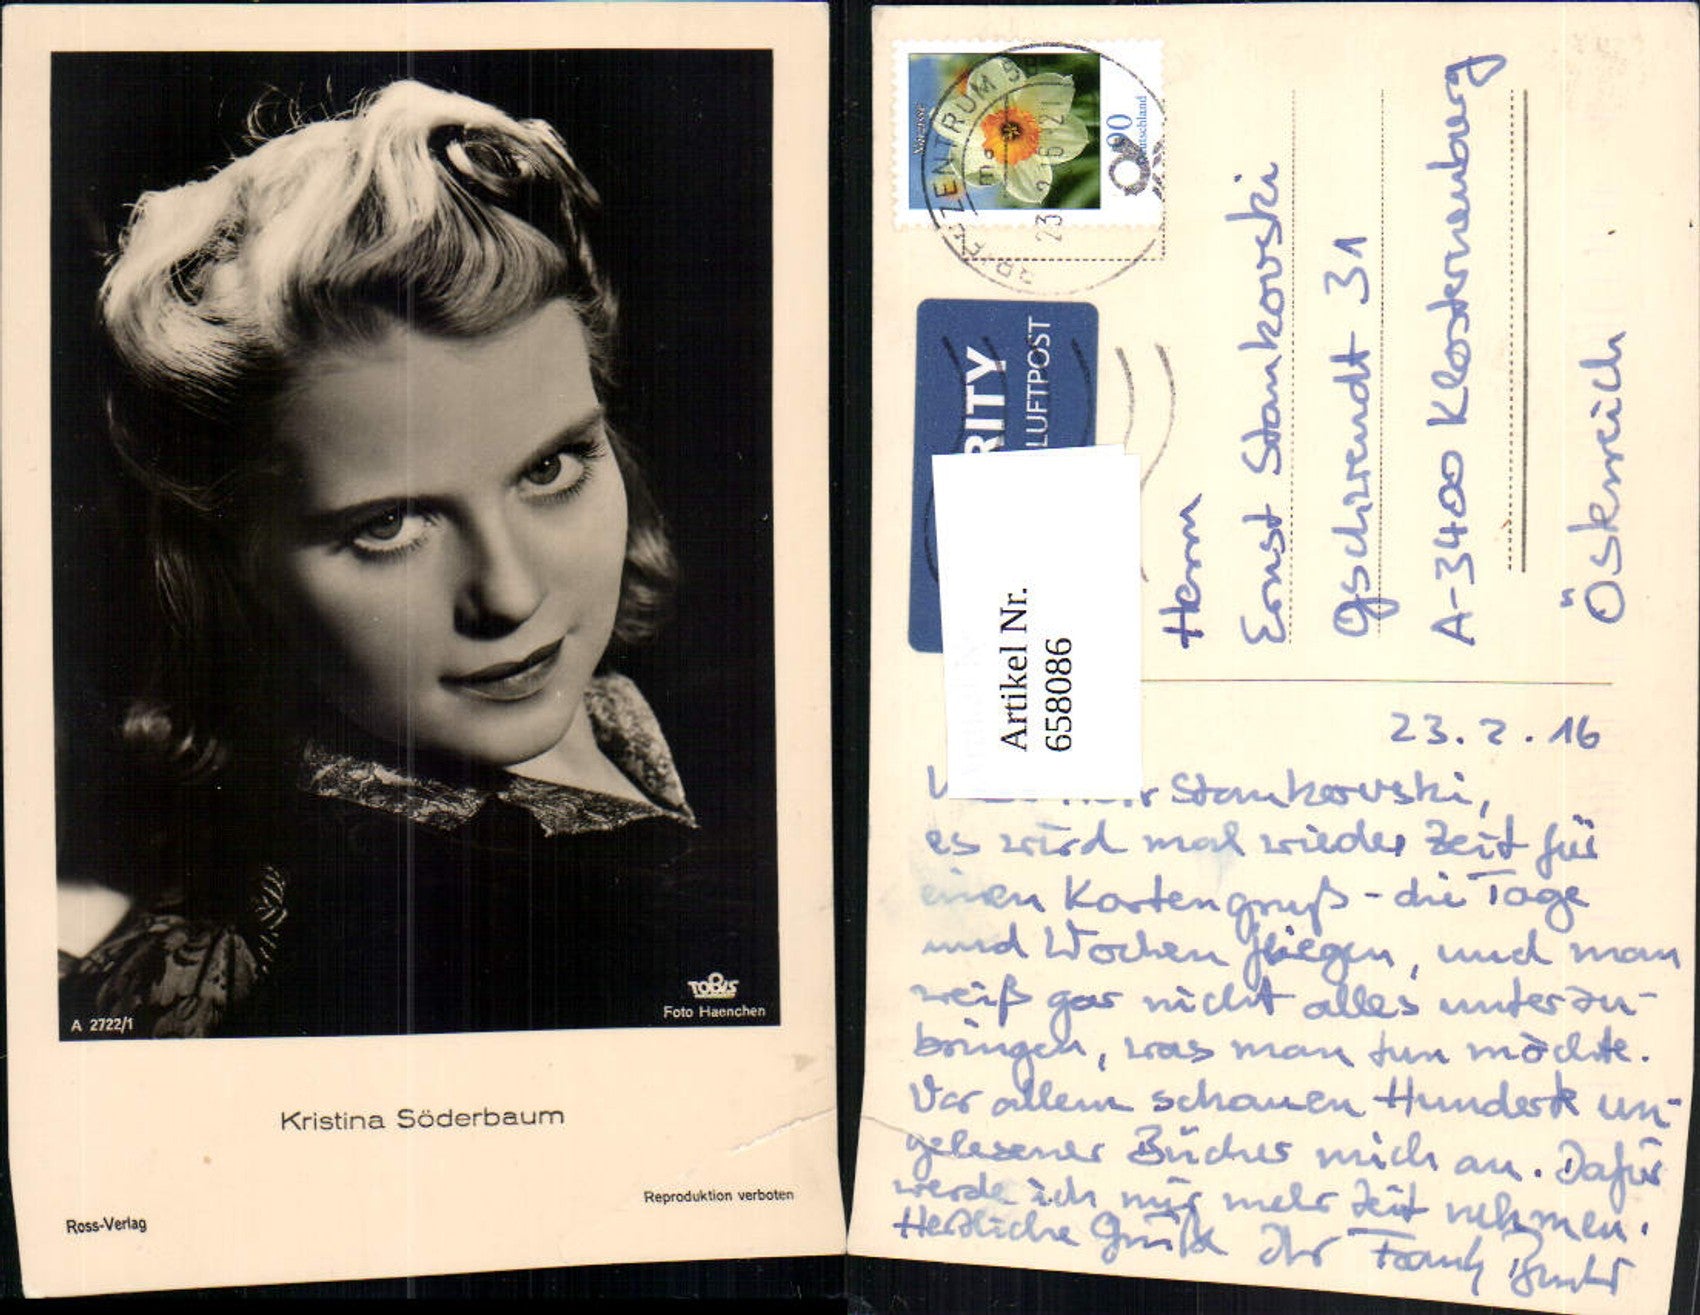 TOBIS
Foto Haenchen
A 2722/1
Kristina Söderbaum
Reproduktion verboten
Ross-Verlag
Narzisse
90
Deutschland
BRIEFZENTRUM
23
RITY
LUFTPOST
Artikel Nr.
658086
Herrn
Ernst Stankovski
Gschwendt 31
A-3400 Klosterneuburg
Österreich
23.2.16
Stankovski,
es wird mal wieder Zeit für
einen Kartengruß - die Tage
und Wochen fliegen, und man
weiß gar nicht alles unterzu-
bringen, was man tun möchte.
Vor allem schauen Hunderte un-
gelesener Bücher mich an. Dafür
werde ich mir mehr Zeit nehmen.
Herzliche Grüße Ihr Frank